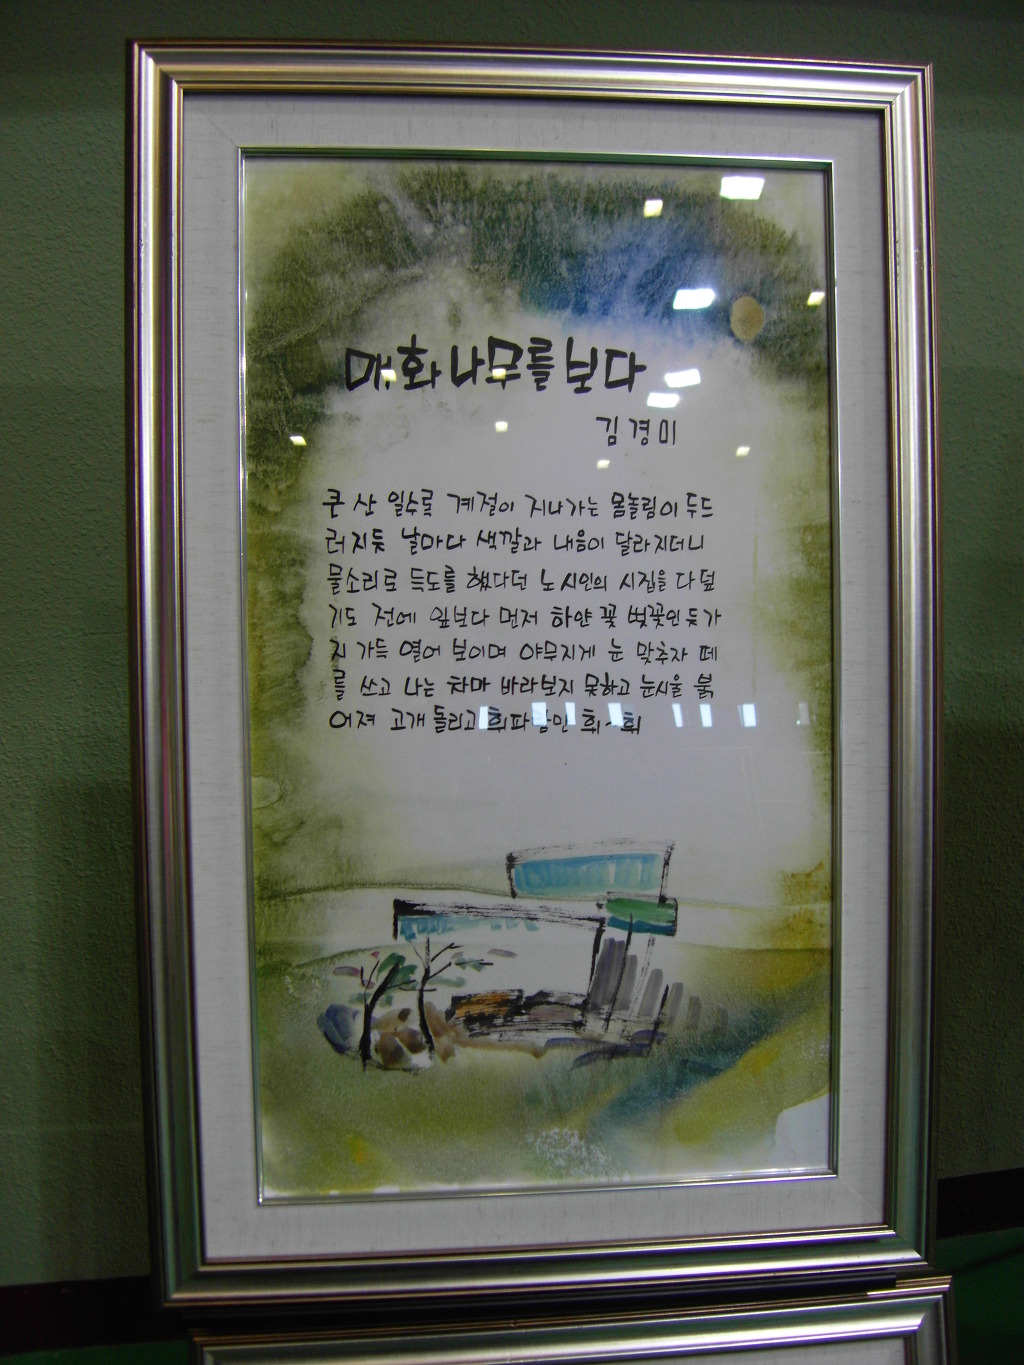 매화나무를보다
김경미
큰 산 일수록 계절이 지나가는 몸놀림이 두드
러지듯 날마다 색깔과 내음이 달라지더니
물소리로 득도를 했다던 노 시인의 시집을 다 덮
기도 전에 잎보다 먼저 하얀 꽃 벚꽃인듯 가
지 가득 열어 보이며 야무지게 눈 맞추자 떼
를 쓰고 나는 차마 바라보지 못하고 눈시울 붉
어져 고개 돌리고 휘파람만 휘휘